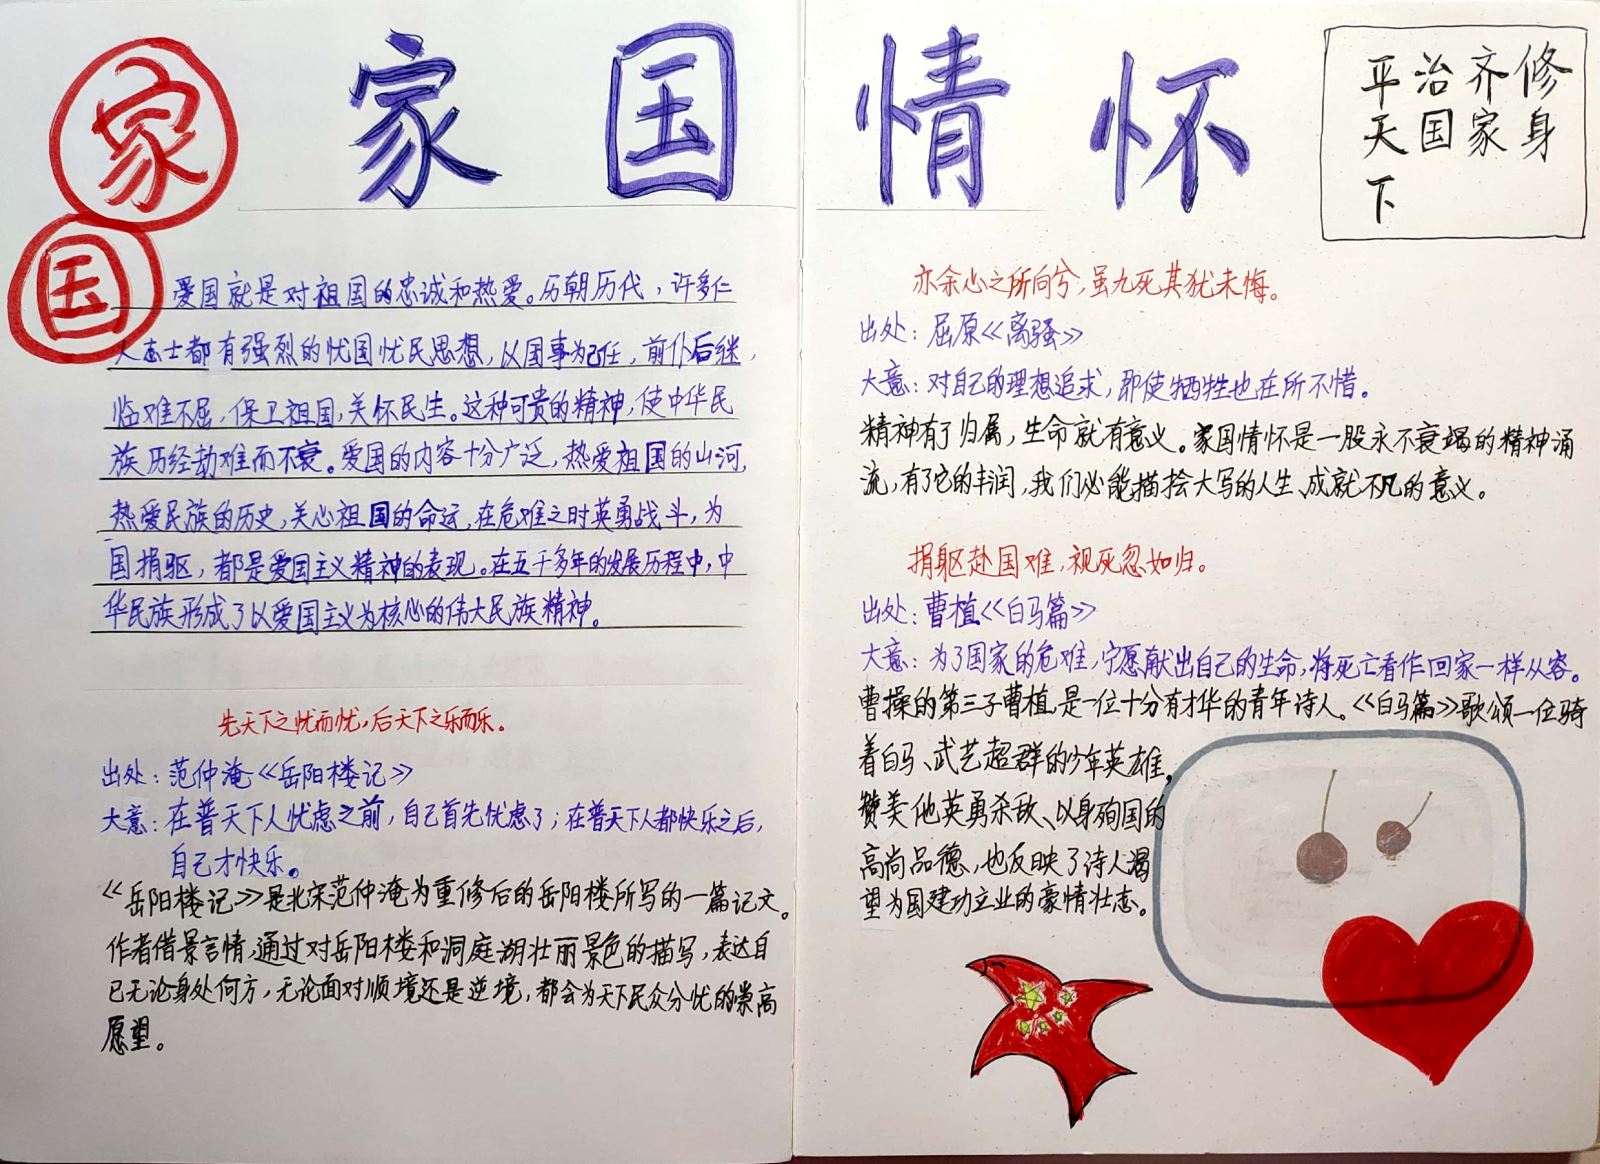 家国
家国情怀
修身
齐家
治国
平天下
爱国就是对祖国的忠诚和热爱。历朝历代，许多仁
人志士都有强烈的忧国忧民思想，以国事为己任，前仆后继，
临难不屈，保卫祖国，关怀民生。这种可贵的精神，使中华民
族历经劫难而不衰。爱国的内容十分广泛，热爱祖国的山河，
热爱民族的历史，关心祖国的命运，在危难之时英勇战斗，为
国捐躯，都是爱国主义精神的表现。在五千多年的发展历程中，中
华民族形成了以爱国主义为核心的伟大民族精神。
先天下之忧而忧，后天下之乐而乐。
出处：范仲淹《岳阳楼记》
大意：在普天下人忧虑之前，自己首先忧虑了；在普天下人都快乐之后，
自己才快乐。
《岳阳楼记》是北宋范仲淹为重修后的岳阳楼所写的一篇记文。
作者借景言情，通过对岳阳楼和洞庭湖壮丽景色的描写，表达自
已无论身处何方，无论面对顺境还是逆境，都会为天下民众分忧的崇高
愿望。
亦余心之所向兮，虽九死其犹未悔。
出处：屈原《离骚》
大意：对自己的理想追求，即使牺牲也在所不惜。
精神有了归属，生命就有意义。家国情怀是一股永不衰竭的精神涌
流，有了它的丰润，我们必能描绘大写的人生、成就不凡的意义。
捐躯赴国难，视死忽如归。
出处：曹植《白马篇》
大意：为了国家的危难，宁愿献出自己的生命，将死亡看作回家一样从容。
曹操的第三子曹植，是一位十分有才华的青年诗人。《白马篇》歌颂一位骑
着白马、武艺超群的少年英雄，
赞美他英勇杀敌、以身殉国的
高尚品德，也反映了诗人渴
望为国建功立业的豪情壮志。